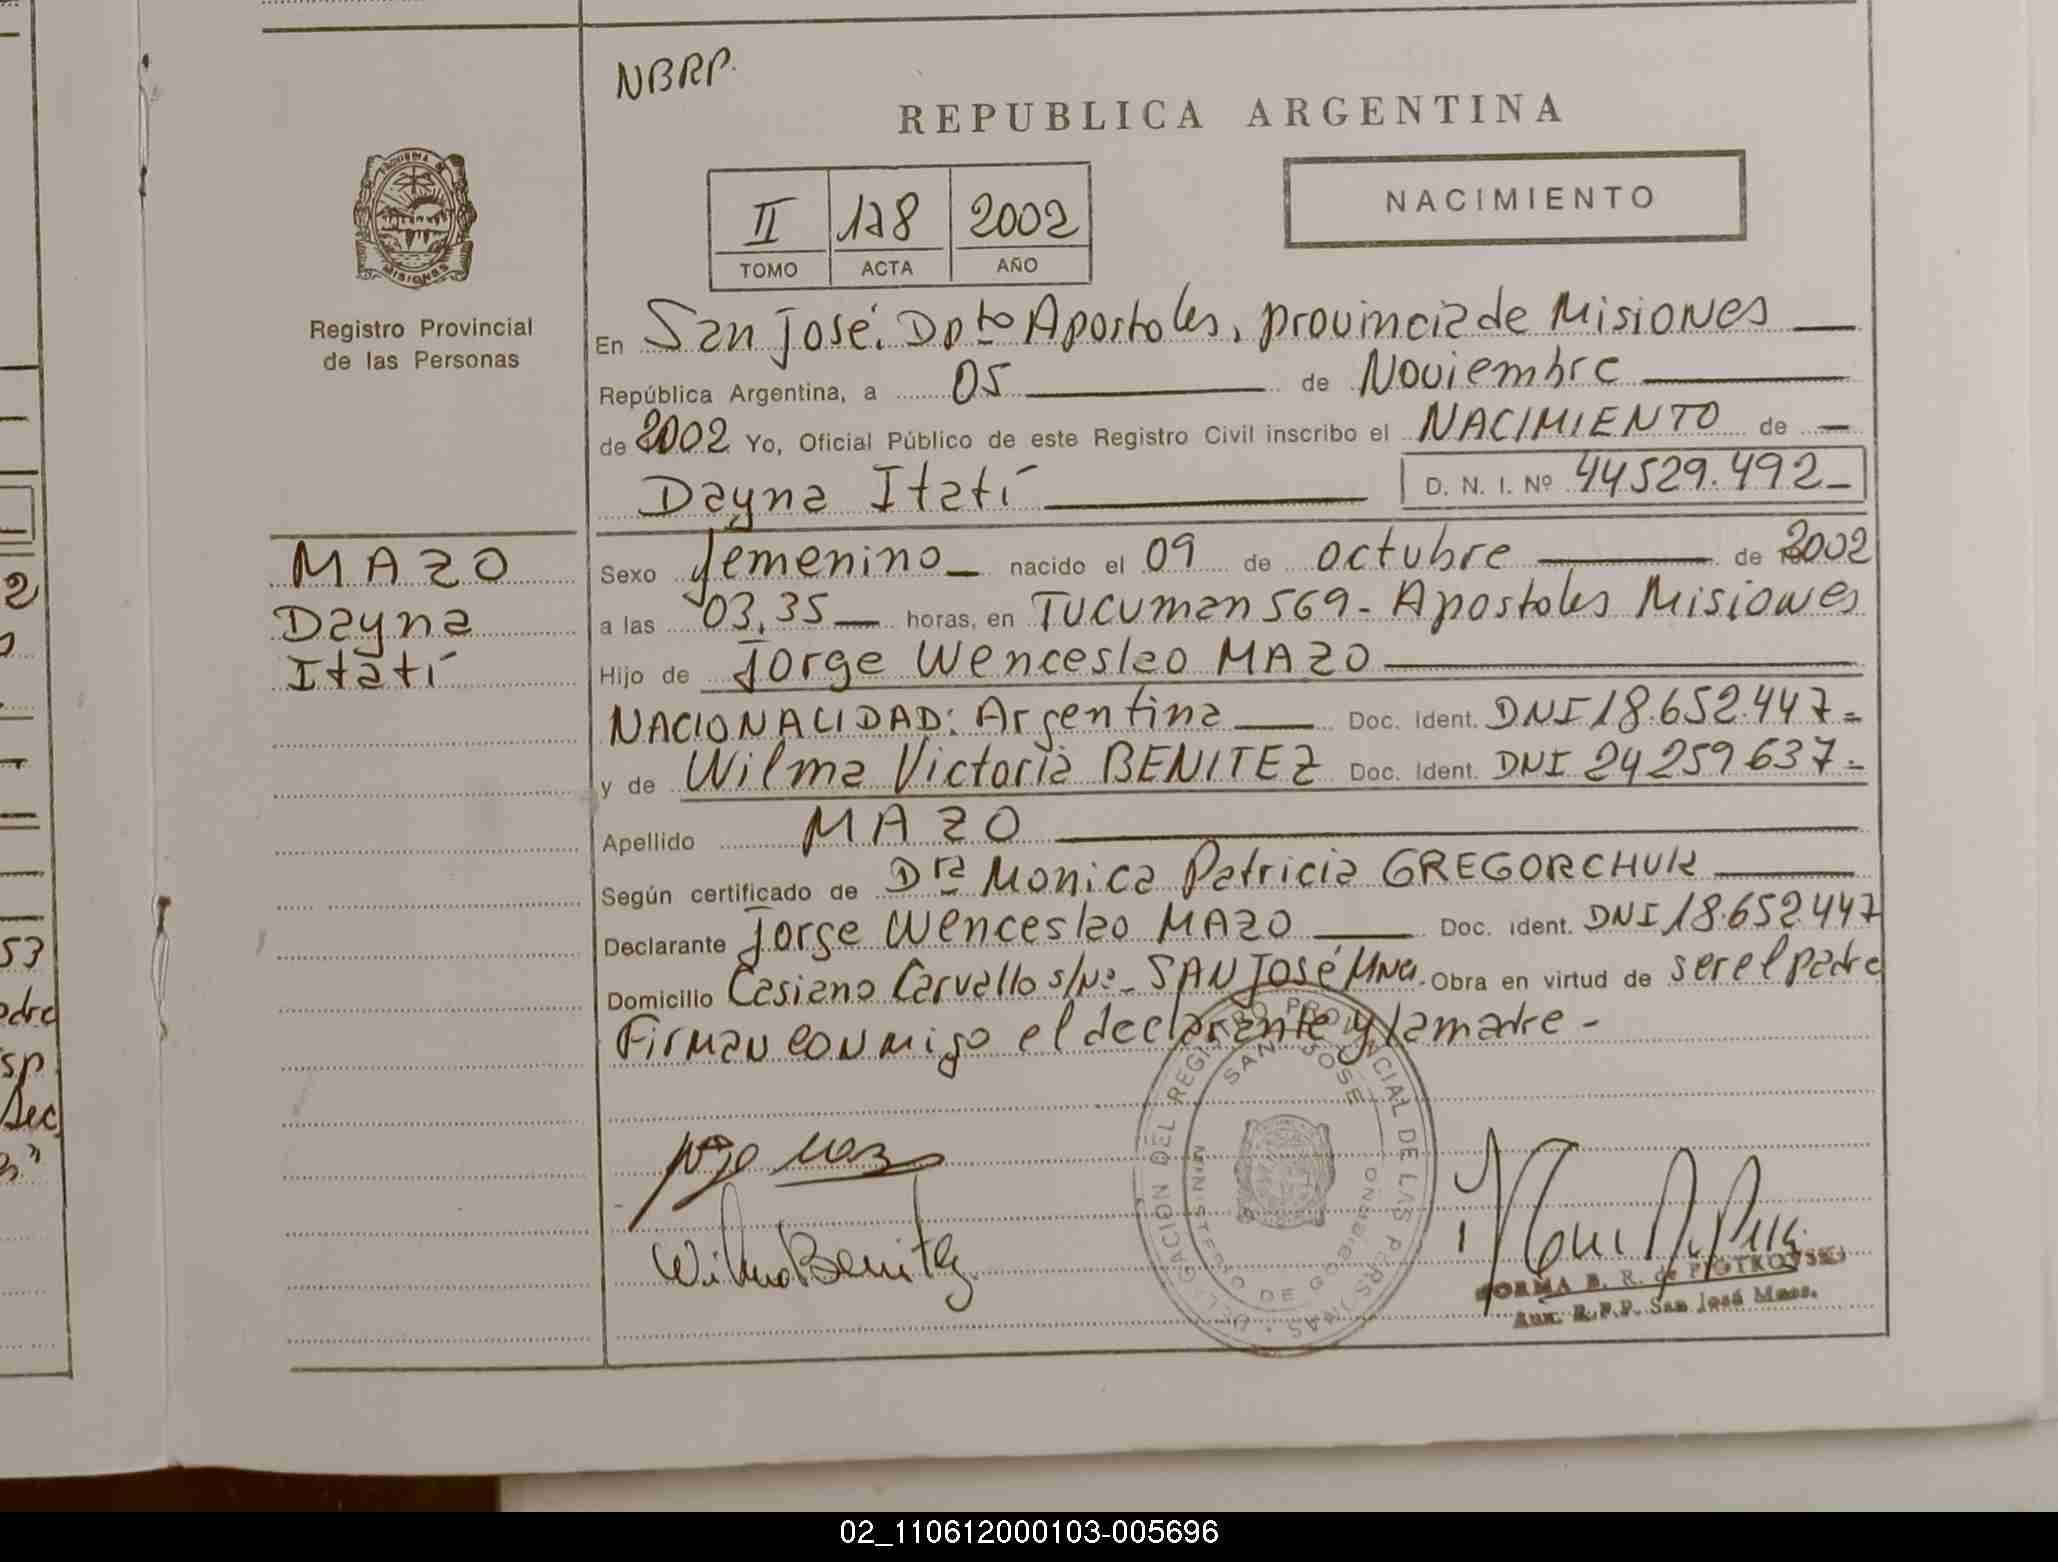 NBRP.
REPUBLICA ARGENTINA
NACIMIENTO
II 128 2002
TOMO ACTA AÑO
PROVINCIA DE
MISIONES
Registro Provincial
de las Personas
En San José. Dpto Apostoles, provincia de Misiones
República Argentina, a 05 de Noviembre
de 2002 Yo, Oficial Público de este Registro Civil inscribo el NACIMIENTO de
Dayna Itatí D. N. I. Nº 44529.492
MAZO
Dayna
Itatí
Sexo femenino nacido el 09 de octubre de 2002
a las 03,35 horas, en Tucuman 569 - Apostoles Misiones
Hijo de Jorge Wenceslao MAZO
NACIONALIDAD: Argentina Doc. Ident. DNI 18.652.447 =
y de Wilma Victoria BENITEZ Doc. Ident. DNI 24259637 =
Apellido MAZO
Según certificado de Dra Monica Patricia GREGORCHUK
Declarante Jorge Wenceslao MAZO Doc. Ident. DNI 18.652.447
Domicilio Casiano Carvallo s/Nº - SAN JOSÉ Mnes. Obra en virtud de ser el padre
Firman conmigo el declarante y la madre -
DELEGACION DEL REGISTRO PROVINCIAL DE LAS PERSONAS
SAN JOSE
MINISTERIO DE GOBIERNO
Jorge Mazo
Wilma Benitez
NORMA B. R. de PIOTKOVSKI
Aux. R.P.P. San José Mnes.
53
02_110612000103-005696